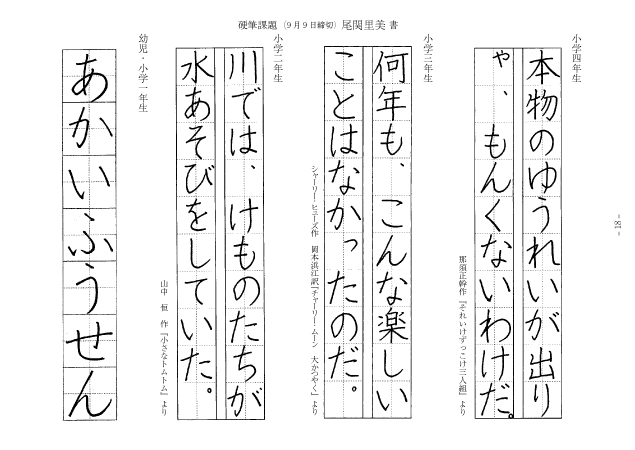 硬筆課題（９月９日締切）尾関里美 書
小学四年生
本物のゆうれいが出り
ゃ、もんくないわけだ。
那須正幹作『それいけズッコケ三人組』より
小学三年生
何年も、こんな楽しい
ことはなかったのだ。
シャーリー・ヒューズ作 岡本浜江訳『チャーリー・ムーン 大かつやく』より
小学二年生
川では、けものたちが
水あそびをしていた。
山中 恒 作『小さなトムトム』より
幼児・小学一年生
あかいふうせん